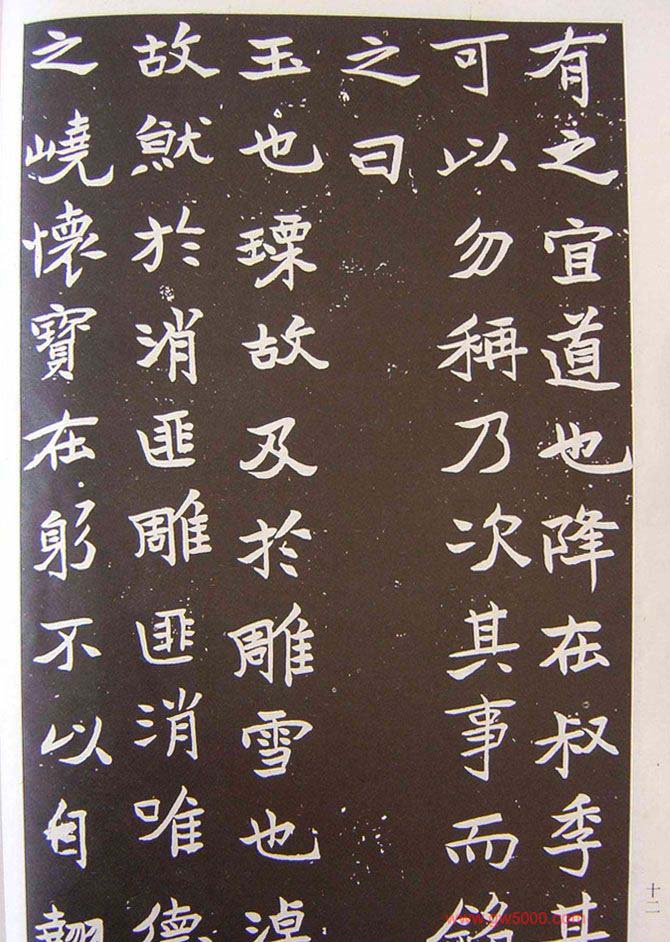 有之宜道也降在叔季其
可以勿稱乃次其事而銘
之曰
玉也瑮故及於雕雪也淖
故就於消匪雕匪消唯德
之嶢懷寶在躬不以自翹
十二
www.yw5000.com